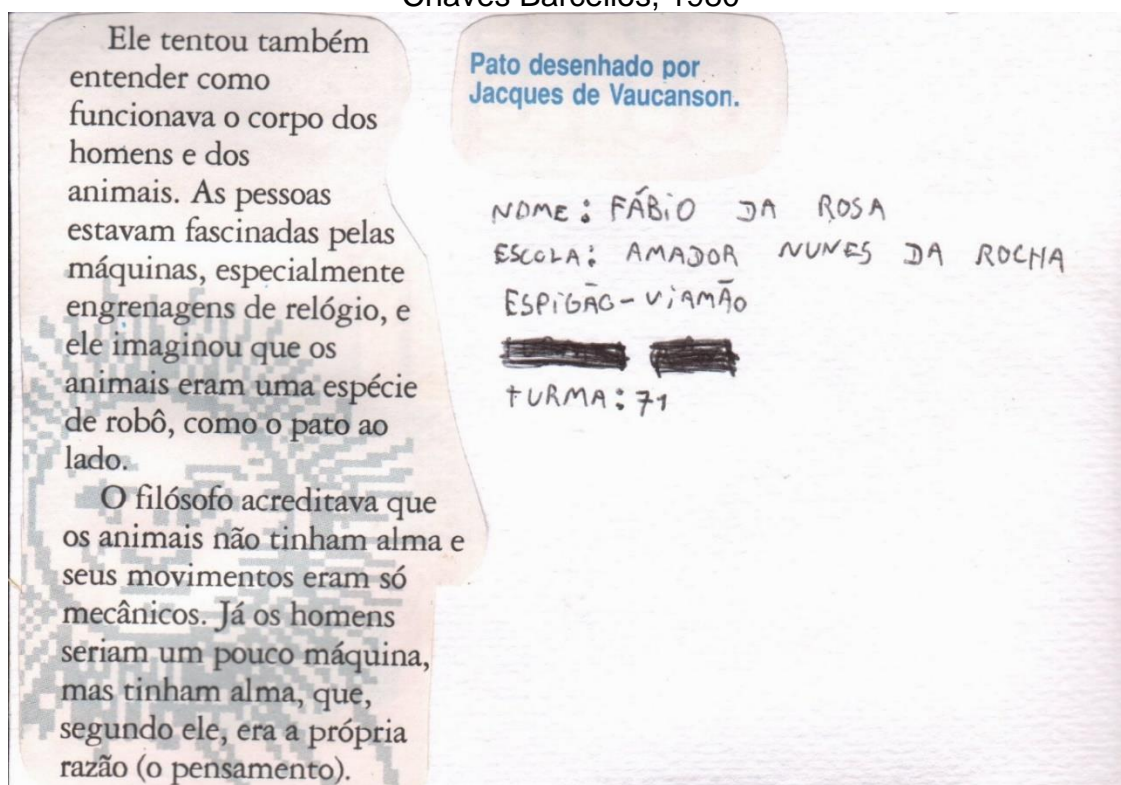 Chaves Barcellos, 1980
Ele tentou também
entender como
funcionava o corpo dos
homens e dos
animais. As pessoas
estavam fascinadas pelas
máquinas, especialmente
engrenagens de relógio, e
ele imaginou que os
animais eram uma espécie
de robô, como o pato ao
lado.
O filósofo acreditava que
os animais não tinham alma e
seus movimentos eram só
mecânicos. Já os homens
seriam um pouco máquina,
mas tinham alma, que,
segundo ele, era a própria
razão (o pensamento).
Pato desenhado por
Jacques de Vaucanson.
NOME: FÁBIO DA ROSA
ESCOLA: AMADOR NUNES DA ROCHA
ESPIGÃO - VIAMÃO
TURMA: 71